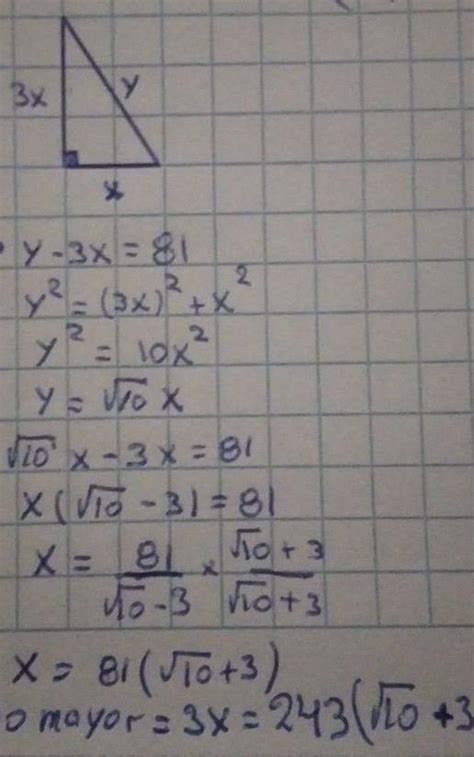 3x
y
x
y - 3x = 81
y² = (3x)² + x²
y² = 10x²
y = √10 x
√10 x - 3x = 81
x(√10 - 3) = 81
x = 81/(√10 - 3) × (√10 + 3)/(√10 + 3)
x = 81(√10 + 3)
o mayor = 3x = 243(√10 + 3